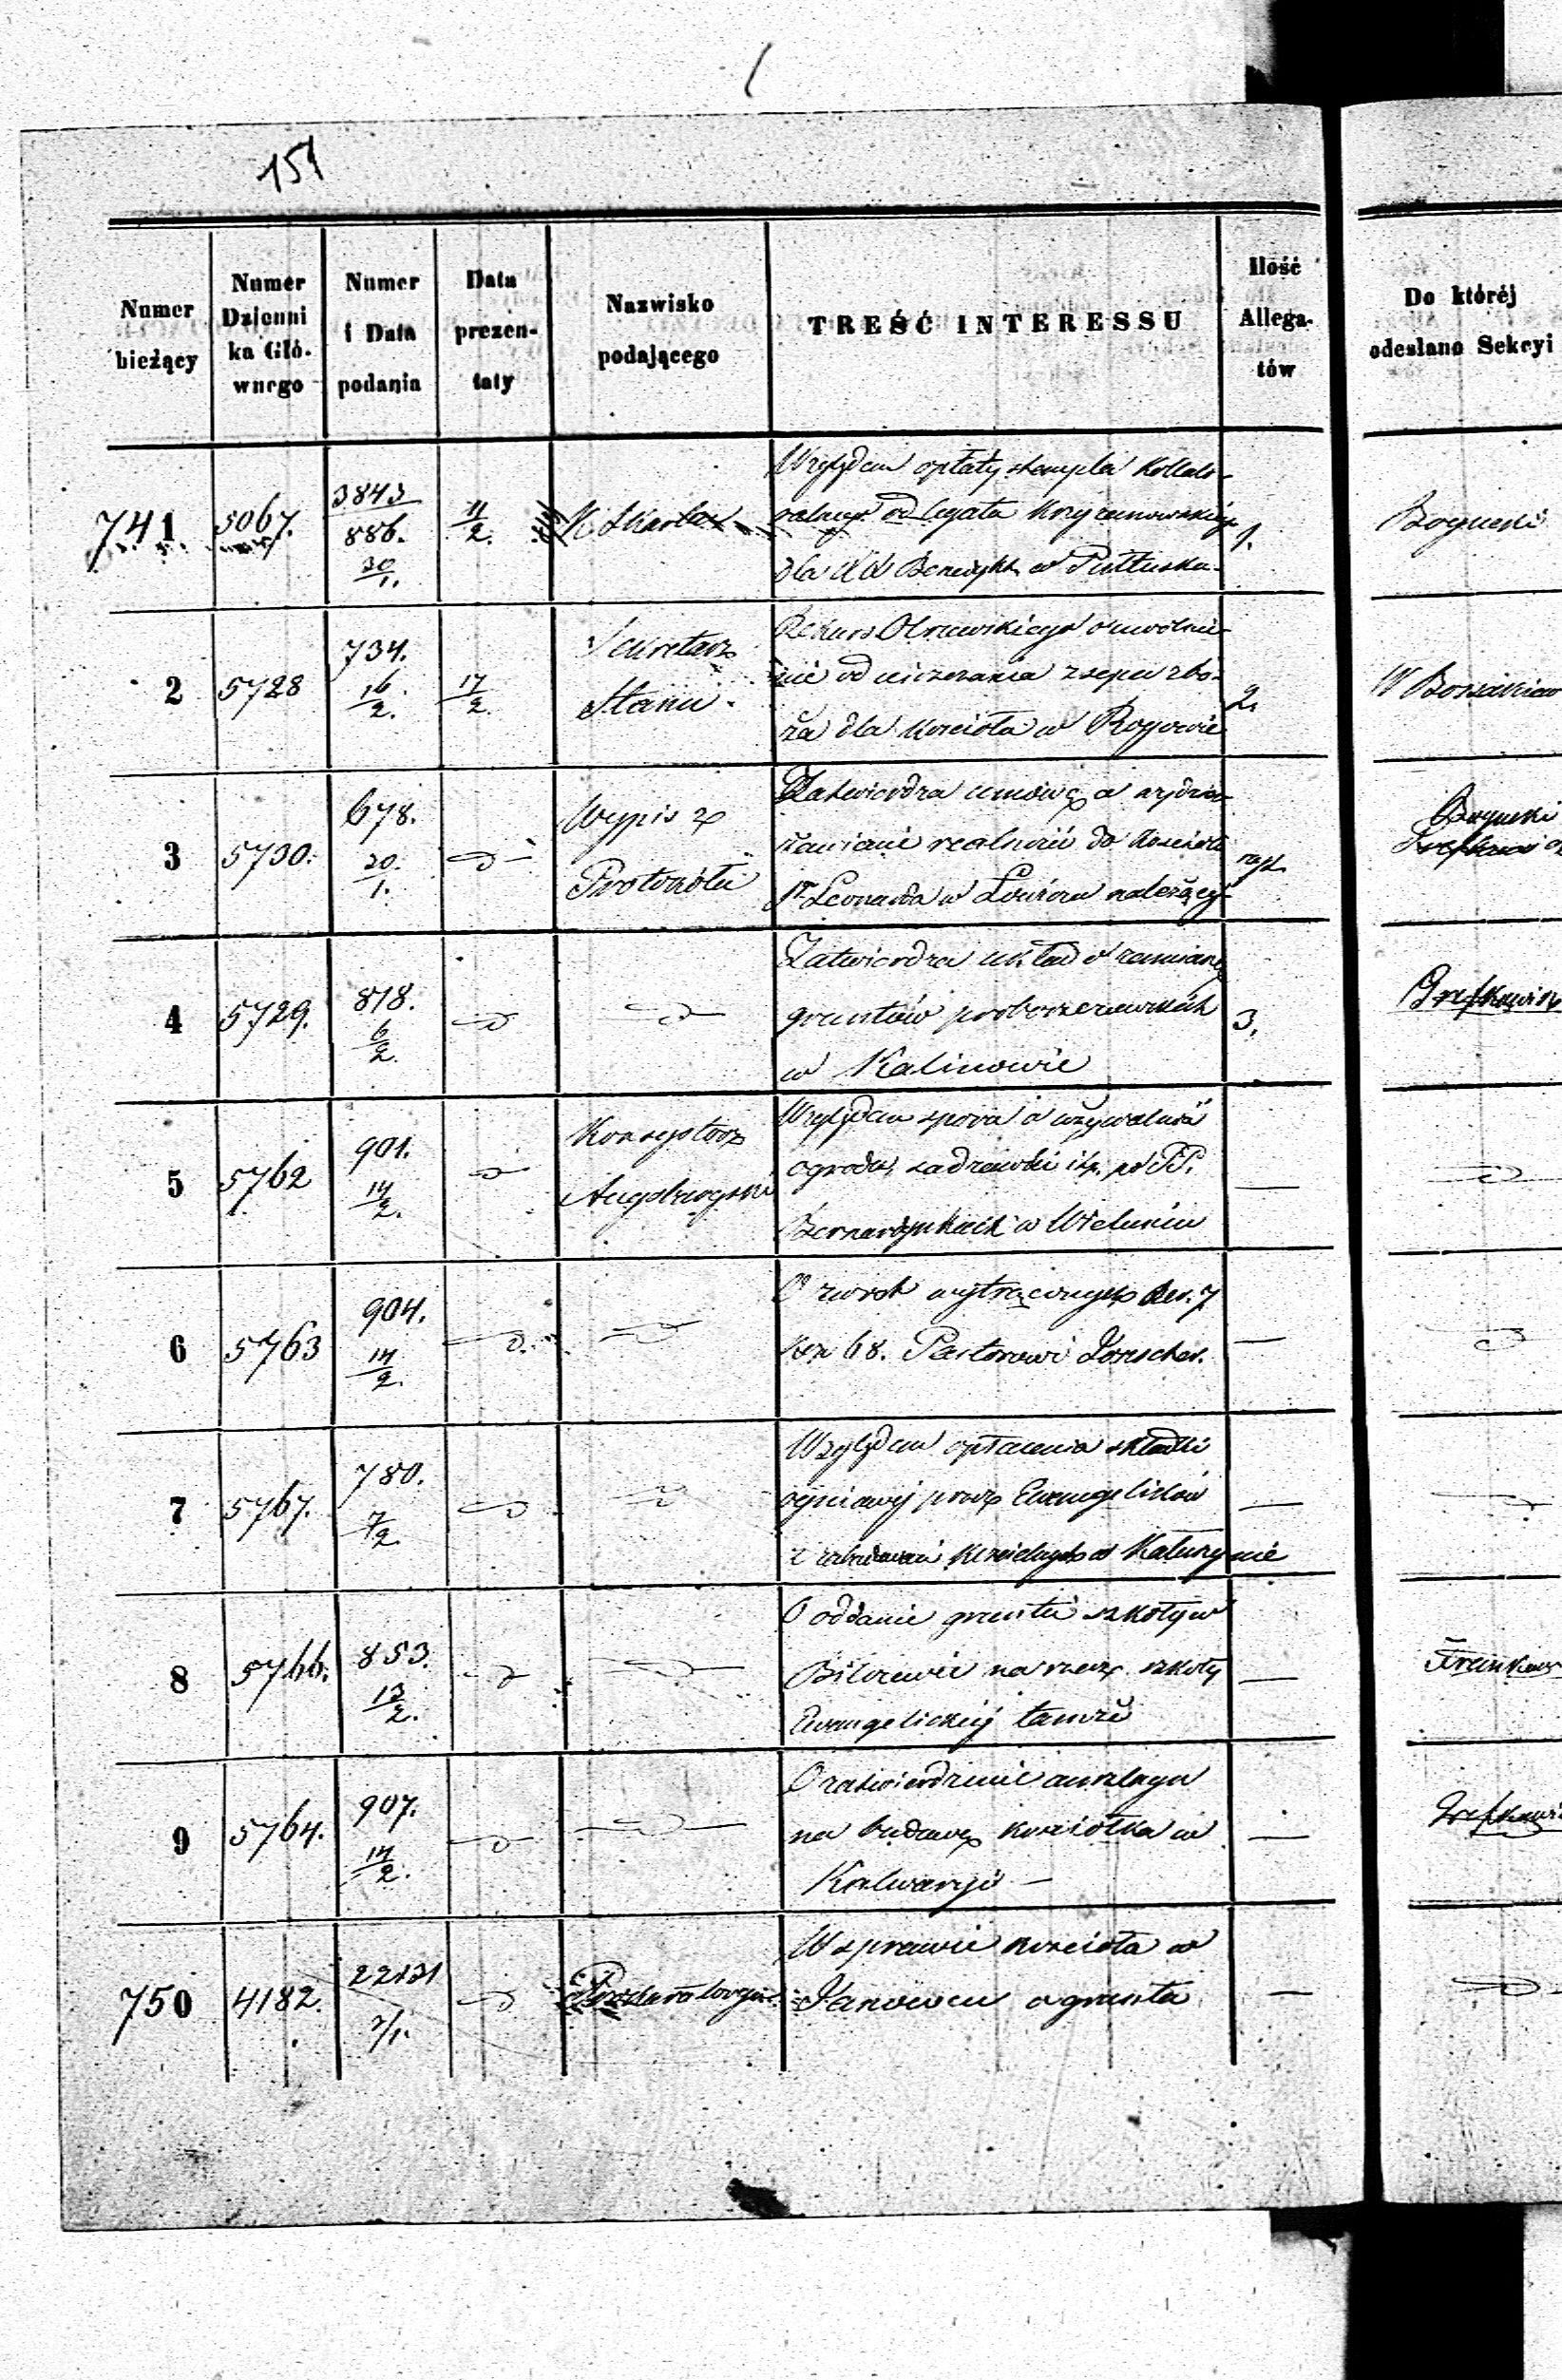 151
Numer bieżący
Numer Dzienni ka Głó- wnego
Numer i Data podania
Data prezen- taty
Nazwisko podającego
TREŚĆ INTERESSU
Ilość Allega- tów
Do któréj odesłano Sekcyi
741
5067.
3843
886.
30/1.
11/2.
Względem opłaty stempla kollate-
ralnego od legata
dla XX Benedykt. w Pułtusku
1.
Boguski
2
5728
734.
16/2.
17/2.
Sekretarz
Stanu
Rekurs Olszewskiego o uwolnie-
nie od uiszczania zsepu zbo-
ża dla kościoła w Rogowie
2.
3
5730.
678.
20/1.
Wypis z
Protokółu
Zatwierdza umowę o wydzier-
żawianie realności do kościoła
Sgo Leonarda w należącej
Boguski
4
5729.
818.
6/2.
Zatwierdza układ o zamianę
gruntów proboszczowskich
w Kalinowie
3.
5
5762
901.
14/2.
Konsystorz
Augsburgski
Względem sporu o używalność
ogrodu, sadzawki itp. po PP.
Bernardynkach w Wieluniu
6
5763
904.
14/2.
O zwrot wytrąconych rs. 7
kop 68. Pastorowi
7
5767.
780.
7/2.
Względem opłacenia składki
ogniowej przez Ewangelików
z zabudowań kościelnych w Kałuszynie
8
5766.
853.
13/2.
O oddanie gruntu szkoły w
na rzecz szkoły
Ewangelickiej tamże
9
5764.
907.
14/2.
O zatwierdzenie anszlagu
na budowę kościołka w
Kalwaryi
750
4182.
22131
2/1.
Prokuratorya
W sprawie kościoła w
Janowcu o grunta